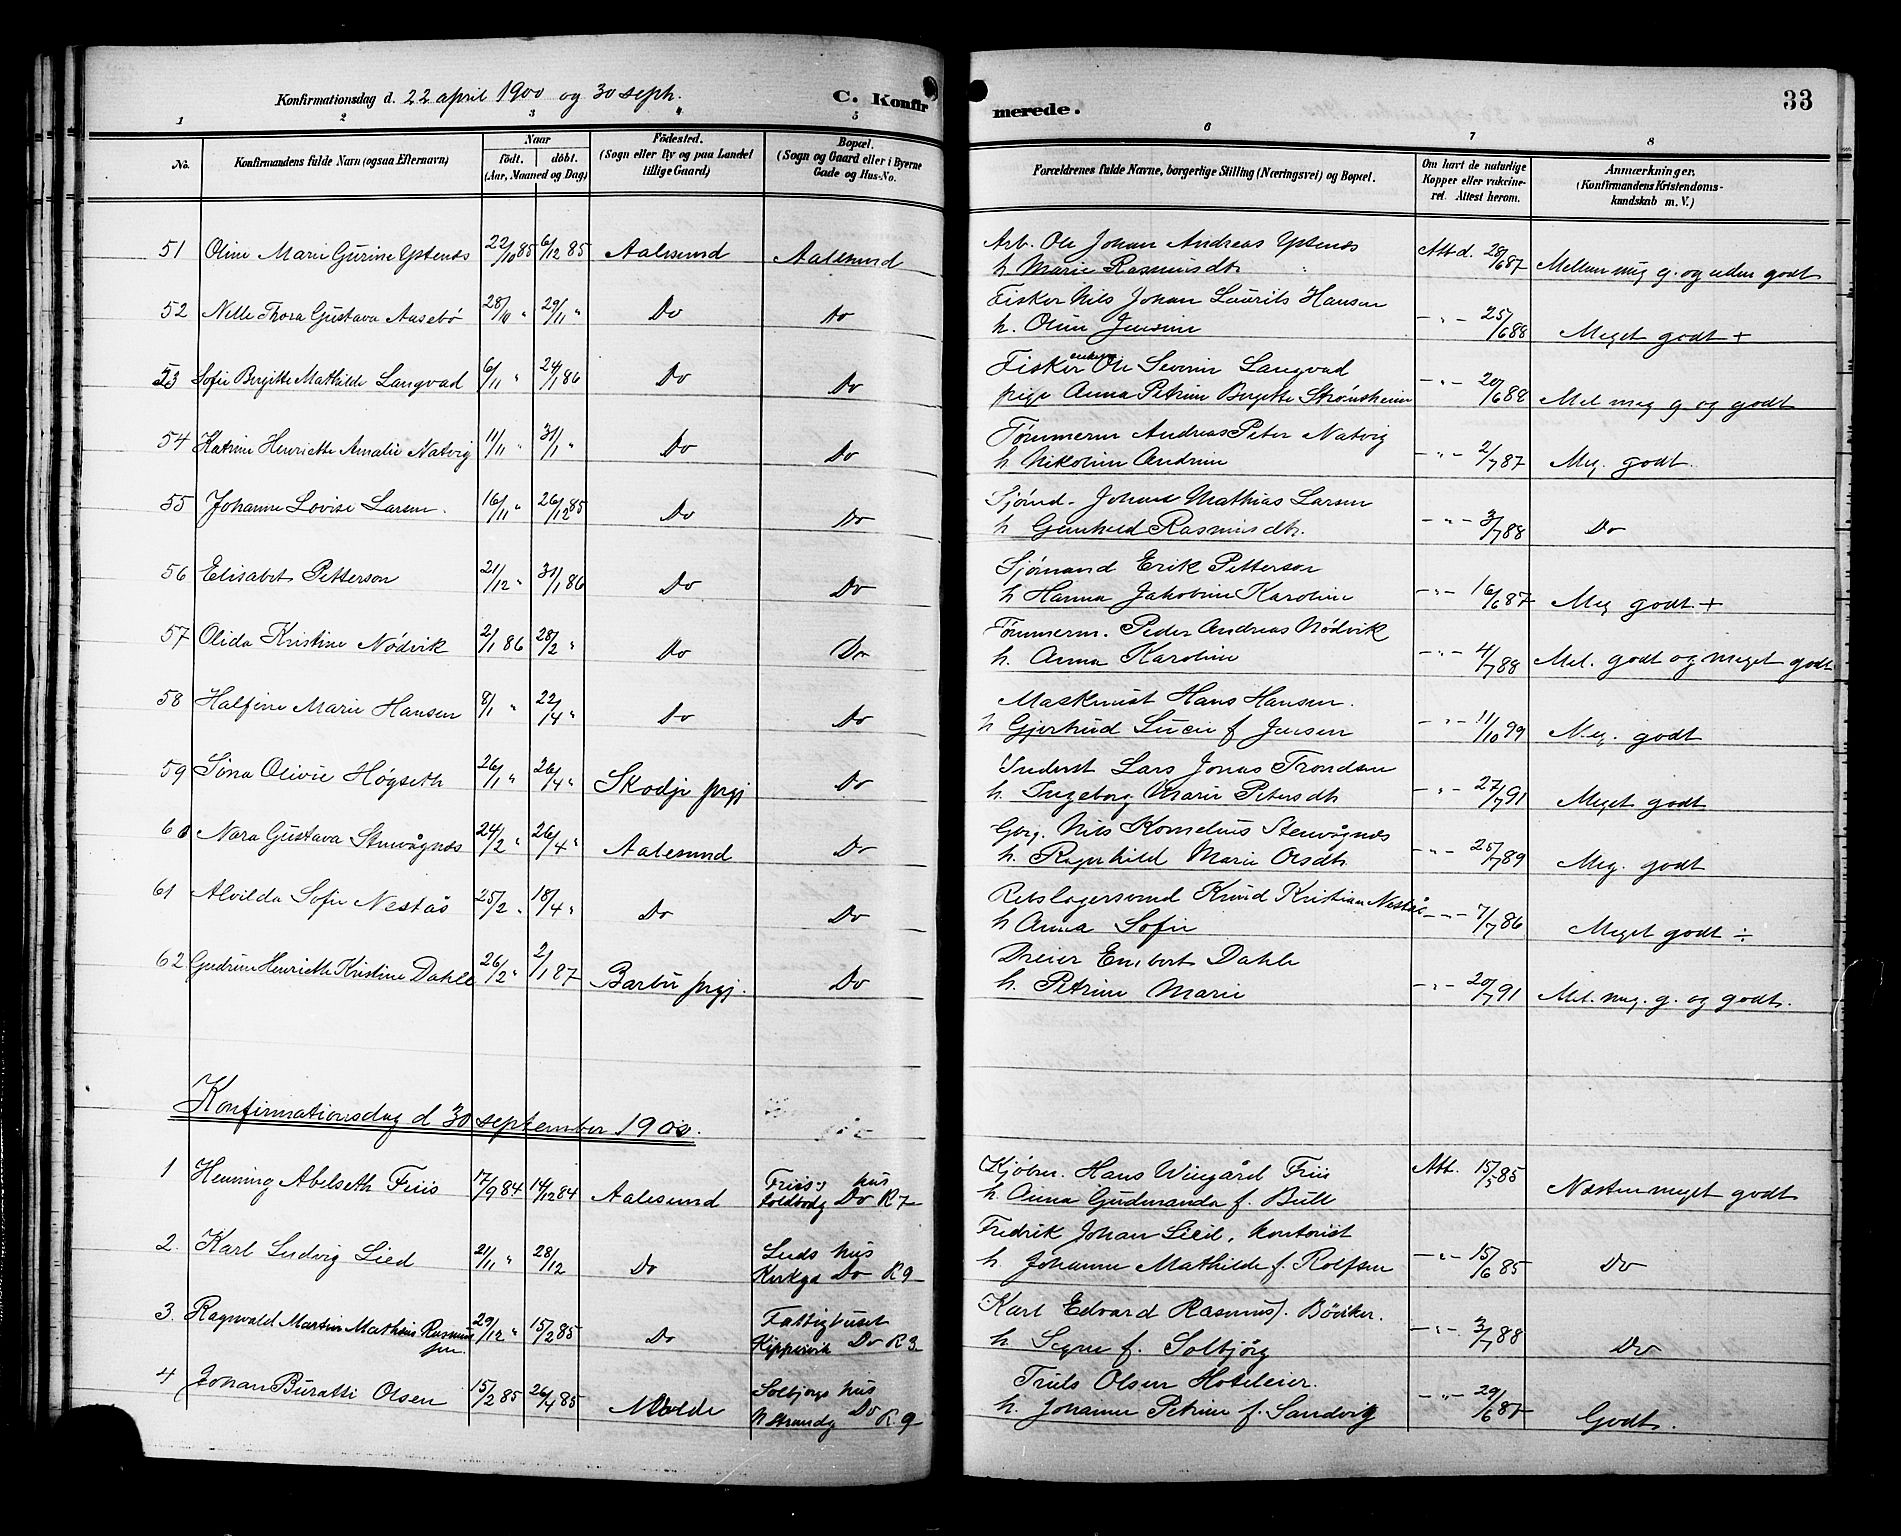 Konfirmationsdag d. 22 april 1900 og 30 sept. C. Konfirmerede. 33
1 2 3 4 5 6 7 8
No. Konfirmandens fulde Navn (ogsaa Efternavn) Naar født. døbt. (Aar, Maaned og Dag) Fødested. (Sogn eller By og paa Landet tillige Gaard) Bopæl. (Sogn og Gaard eller i Byerne Gade og Hus-No. Forældrenes fulde Navne, borgerlige Stilling (Næringsvei) og Bopæl. Om havt de naturlige Kopper eller vakcineret. Attest herom. Anmærkninger. (Konfirmandens Kristendomskundskab m. V.)
51 Oline Marie Gurine Ystenes 22/10 85 6/12 85 Aalesund Aalesund Arb. Ole Johan Andreas Ystenes Att d. 28/6 87 Mellem meg g. og uden godt
h. Marie Rasmusdtr
52 Nille Thora Gustava Aasebø 28/10 " 29/11 " Do Do Fisker Nils Johan Laurits Hansen -"- 25/6 88 Meget godt +
h. Oline Jensine
53 Sofie Birgitte Mathilde Langvad 6/11 " 24/1 86 Do Do Fisker Ole Severin Langvad -"- 20/6 88 Mel meg g. og godt
pige Anna Petrine Birgitte Strønsheim
54 Katrine Henriette Amalie Natvig 11/11 " 31/1 " Do Do Tømmerm Andreas Peter Natvig -"- 2/7 87 Meg. godt.
h. Nikoline Andrine
55 Johanne Lovise Larsen. 16/11 " 26/12 85 Do Do Sjømd. Johan Mathias Larsen -"- 3/7 88 Do
h. Gunhild Rasmusdtr.
56 Elisabet Petterson 21/12 " 31/1 86 Do Do Sjømand Erik Petterson -"- 16/6 87 Meg godt +
h Hanna Jakobine Karoline
57 Olida Kristine Nødvik 2/1 86 28/2 " Do Do Tømmerm. Peder Andreas Nødvik -"- 4/7 88 Mel. godt og meget godt
h. Anna Karoline
58 Halfine Marie Hansen 8/1 " 22/4 " Do Do Maskinist Hans Hansen. -"- 11/10 99 Meg. godt
h Gjertrud Lucie f Jensen
59 Sina Olivie Høgseth 26/1 " 26/4 " Skodje prgj Do Inderst Lars Jonas Trondsen -"- 27/7 91 Meget godt
h. Ingeborg Marie Petersdtr
60 Nora Gustava Stenvågnes 24/2 " 26/4 " Aalesund Do Gbrg. Nils Kornelius Stenvågnes -"- 25/7 89 Meg. godt
h. Ragnhild Marie Olsdtr.
61 Alvilda Sofie Nestås 25/2 " 18/4 " Do Do Rebslagersvend Knud Kristian Nestås -"- 7/7 86 Meget godt ÷
h Anna Sofie
62 Gudrun Henriette Kristine Dahle 26/2 " 2/1 87 Barbu prgj. Do Dreier Dahle -"- 20/7 91 Mel. meg. g. og godt.
h. Petrine Marie
Konfirmationsdag d 30 september 1900.
1 Henning Abelseth Friis 17/9 84 14/12 84 Aalesund Friis's hus Toldbodg Do R 7 Kjøbm. Hans Wingård Friis Att. 15/5 85 Næsten meget godt
h. Anna Gudmanda f. Bull
2. Karl Ludvig Lied 21/11 " 28/12 Do Lieds hus Kirkga Do R 9 Fredrik Johan Lied, kontorist -"- 15/6 85 Do
h. Johanne Mathilde f. Rolfsen
3. Ragnvald Martin Mathias Rasmussen. 29/12 " 15/2 85 Do Fattighuset Kippervik Do R 3 Karl Edvard Rasmuss. Bødker. -"- 3/7 88 Do
h. Signe f. Solbjørg
4 Johan Buratti Olsen 15/2 85 26/4 85 Molde Solbjørgs hus N Strandg Do R 9 Truls Olsen Hoteleier. -"- 29/6 87 Godt.
h. Johanne Petrine f. Sandvig